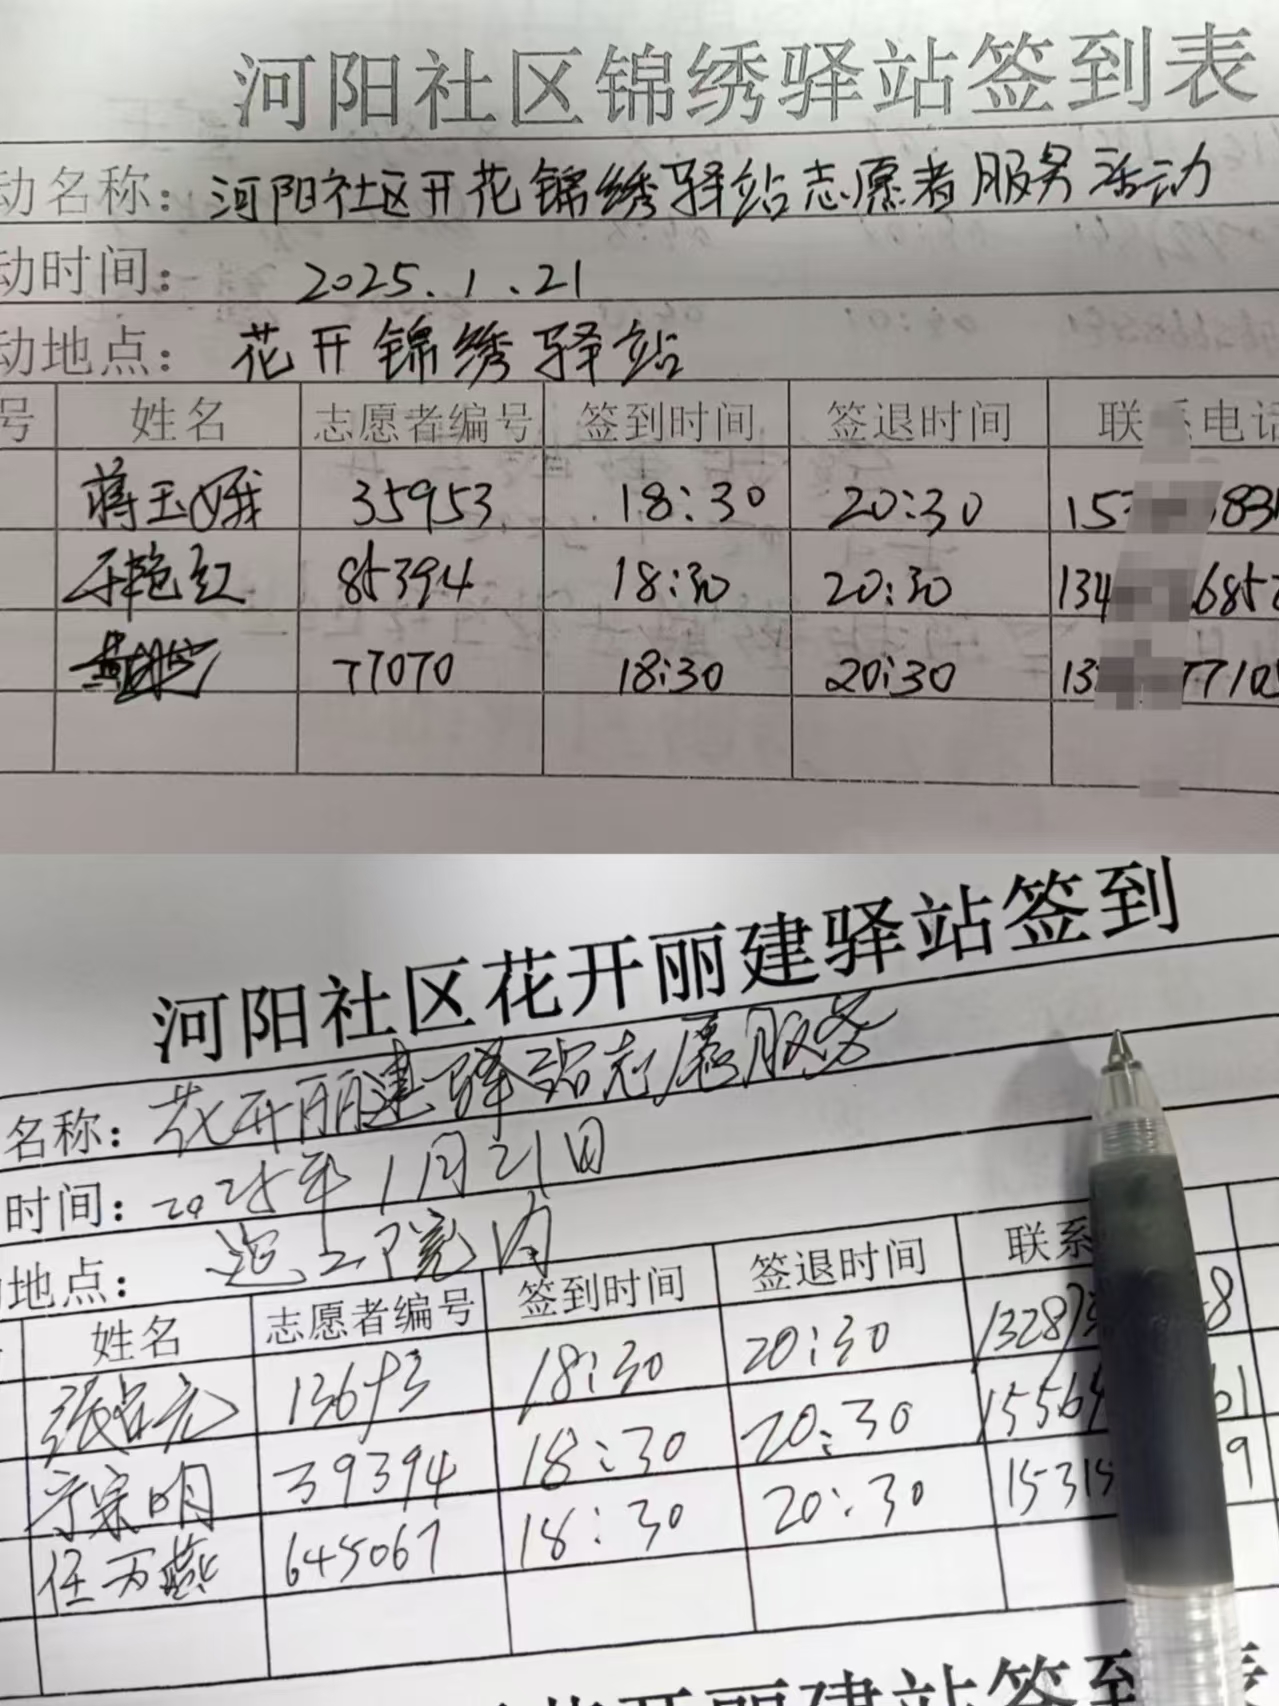 河阳社区锦绣驿站签到表
动名称：河阳社区开花锦绣驿站志愿者服务活动
动时间： 2025.1.21
动地点： 花开锦绣驿站
号 姓名 志愿者编号 签到时间 签退时间 联系电话
蒋玉娥 35953 18:30 20:30 15 83
艳红 85394 18:30 20:30 134 685
77070 18:30 20:30 13 7710
河阳社区花开丽建驿站签到
名称：花开丽建驿站志愿服务
时间：2025年1月21日
地点： 院内
姓名 志愿者编号 签到时间 签退时间 联系
张占元 13693 18:30 20:30 13287 8
宗明 39394 18:30 20:30 1556 61
任万燕 645067 18:30 20:30 15315 9
花开丽建驿站签到表